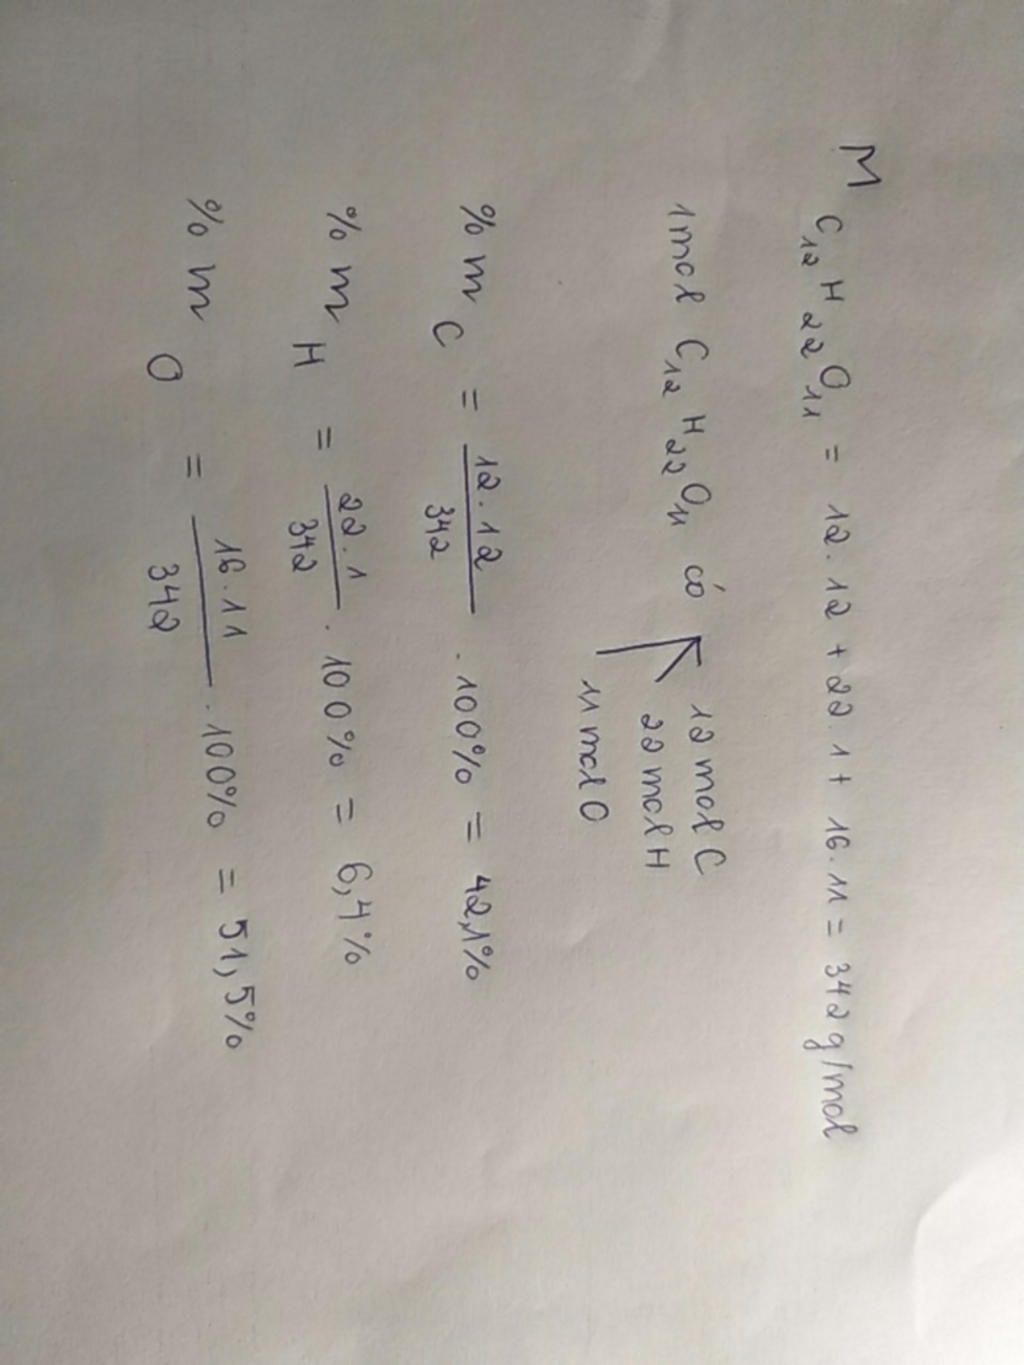 M C₁₂H₂₂O₁₁ = 12.12 + 22.1 + 16.11 = 342 g/mol
12 mol C
1 mol C₁₂H₂₂O₁₁ có 22 mol H
11 mol O
% m C = 12.12/342 . 100% = 42,1%
% m H = 22.1/342 . 100% = 6,4%
% m O = 16.11/342 . 100% = 51,5%